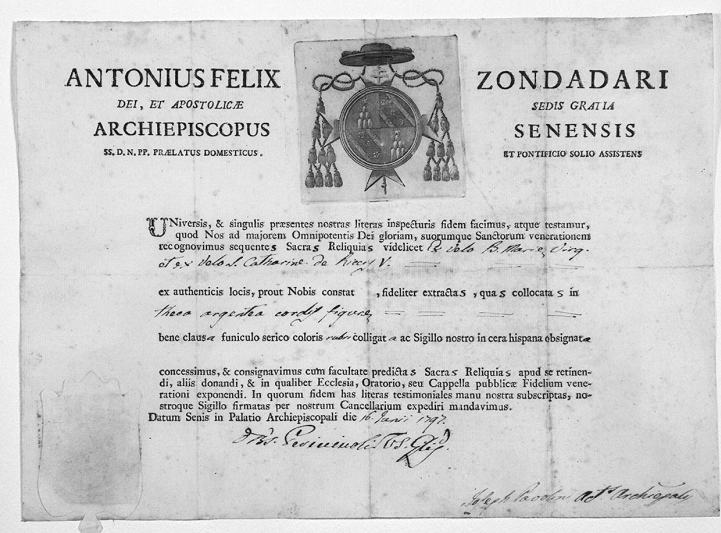 ANTONIUS FELIX ZONDADARI
DEI, ET APOSTOLICÆ SEDIS GRATIA
ARCHIEPISCOPUS SENENSIS
SS. D. N. PP. PRÆLATUS DOMESTICUS. ET PONTIFICIO SOLIO ASSISTENS
UNiversis, & singulis præsentes nostras literas inspecturis fidem facimus, atque testamur,
quod Nos ad majorem Omnipotentis Dei gloriam, suorumque Sanctorum venerationem
recognovimus sequentes Sacras Reliquias videlicet Ex velo B. Mariæ Virg.
et ex velo S. Catharinæ de Riccijs V.
ex authenticis locis, prout Nobis constat , fideliter extractas, quas collocatas in
theca argentea cordis figuræ
bene clausæ funiculo serico coloris rubri colligatæ ac Sigillo nostro in cera hispana obsignatæ
concessimus, & consignavimus cum facultate predictas Sacras Reliquias apud se retinen-
di, aliis donandi, & in qualibet Ecclesia, Oratorio, seu Cappella pubblicæ Fidelium vene-
rationi exponendi. In quorum fidem has literas testimoniales manu nostra subscriptas, no-
stroque Sigillo firmatas per nostrum Cancellarium expediri mandavimus.
Datum Senis in Palatio Archiepiscopali die 16. 1797.
Joseph